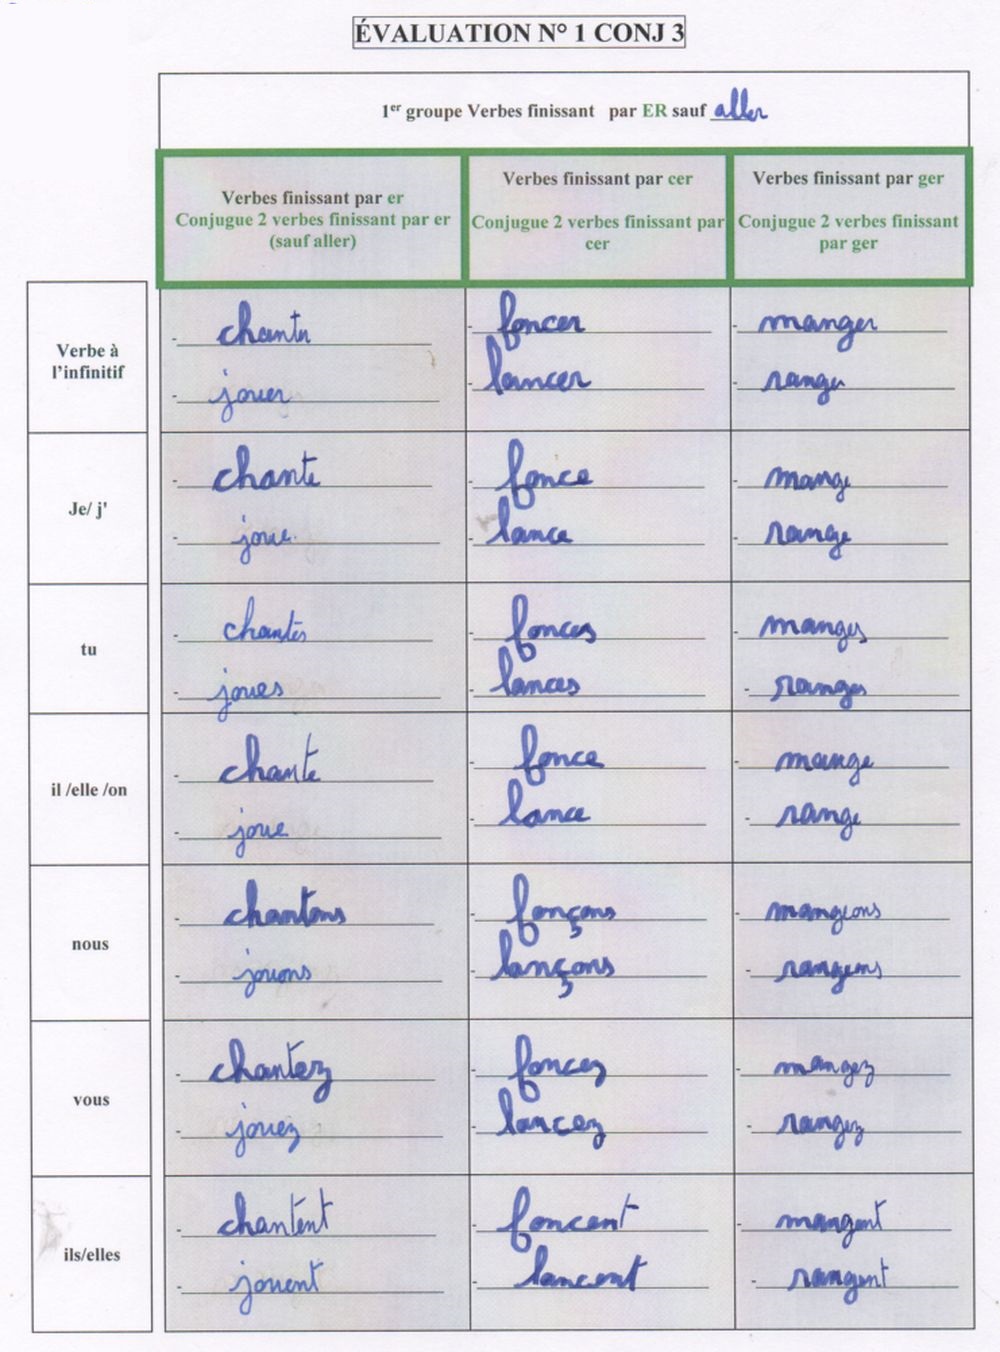 ÉVALUATION N° 1 CONJ 3
1er groupe Verbes finissant par ER sauf aller
Verbes finissant par er
Conjugue 2 verbes finissant par er
(sauf aller)
Verbes finissant par cer
Conjugue 2 verbes finissant par
cer
Verbes finissant par ger
Conjugue 2 verbes finissant
par ger
Verbe à
l'infinitif
- chanter
- jouer
- foncer
- lancer
- manger
- ranger
Je/ j'
- chante
- joue
- fonce
- lance
- mange
- range
tu
- chantes
- joues
- fonces
- lances
- manges
- ranges
il /elle /on
- chante
- joue
- fonce
- lance
- mange
- range
nous
- chantons
- jouons
- fonçons
- lançons
- mangeons
- rangeons
vous
- chantez
- jouez
- foncez
- lancez
- mangez
- rangez
ils/elles
- chantent
- jouent
- foncent
- lancent
- mangent
- rangent